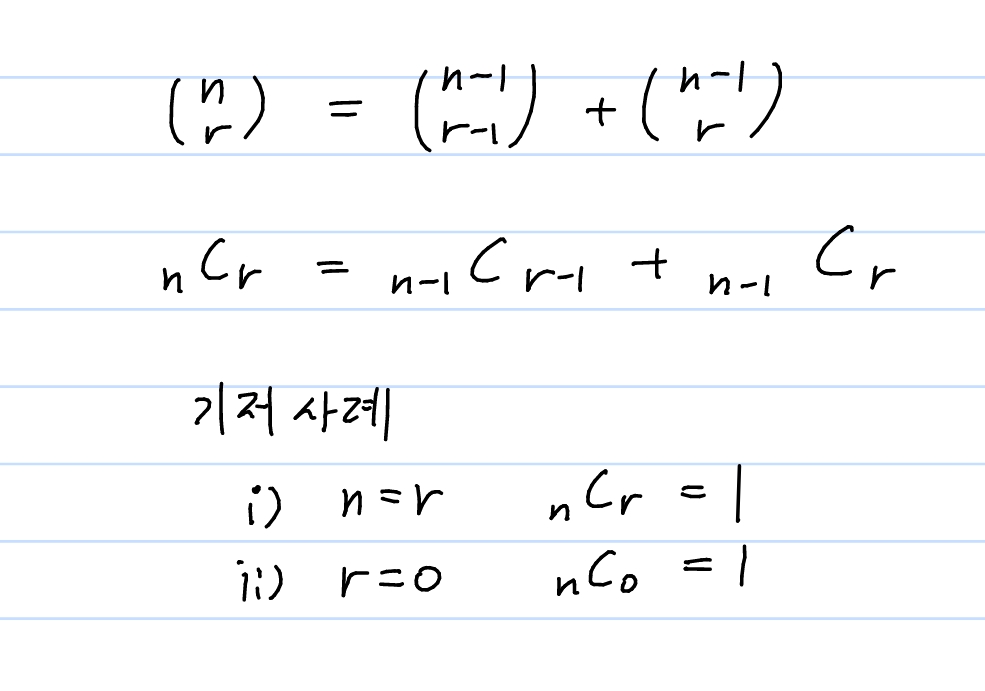 (n r) = (n-1 r-1) + (n-1 r)
nCr = n-1Cr-1 + n-1Cr
기저 사례
i) n=r nCr = 1
ii) r=0 nC0 = 1